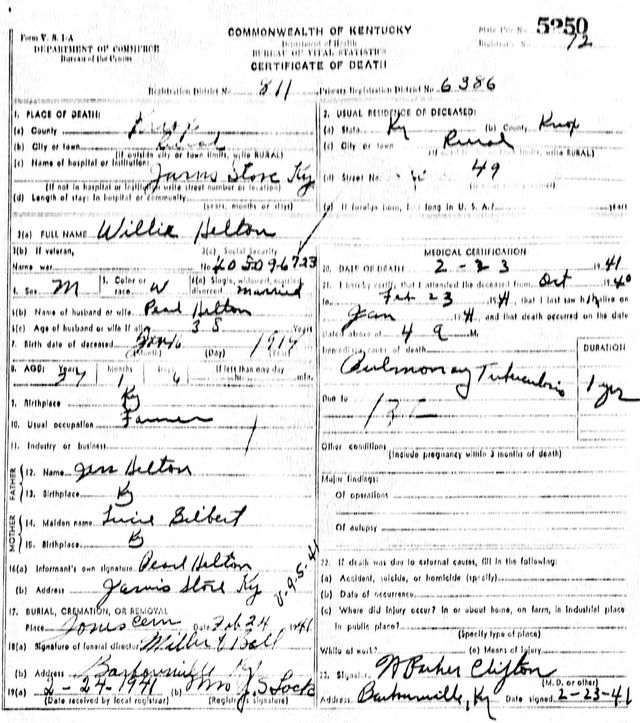 Form V. S. 1-A
DEPARTMENT OF COMMERCE
Bureau of the Census
COMMONWEALTH OF KENTUCKY
Department of Health
BUREAU OF VITAL STATISTICS
CERTIFICATE OF DEATH
State File No. 5250
Registrar's No. 72
Registration District No. 811
Primary Registration District No. 6386
1. PLACE OF DEATH:
(a) County Knox
(b) City or town Rural
(If outside city or town limits, write RURAL)
(c) Name of hospital or institution:
Jarvis Store Ky
(If not in hospital or institution write street number or location)
(d) Length of stay: In hospital or community
(years, months or days)
2. USUAL RESIDENCE OF DECEASED:
(a) State Ky (b) County Knox
(c) City or town Rural
(If outside city or town limits, write RURAL)
(d) Street No. 49
(e) If foreign born, how long in U. S. A.? years
3(a) FULL NAME Willie Helton
3(b) If veteran,
Name war
3(c) Social Security
No.
4. Sex M
5. Color or
race W
6(a) Single, widowed, married,
divorced married
6(b) Name of husband or wife Pearl Helton
6(c) Age of husband or wife if alive 38 Years
7. Birth date of deceased
(Month) (Day) (Year)
8. AGE: Years Months Days If less than one day
37 1 6 hr. min.
9. Birthplace Ky
10. Usual occupation Farmer
11. Industry or business
FATHER
12. Name Jess Helton
13. Birthplace Ky
MOTHER
14. Maiden name Gilbert
15. Birthplace Ky
16(a) Informant's own signature Pearl Helton
(b) Address Jarvis Store Ky
V-9-5-41
17. BURIAL, CREMATION, OR REMOVAL
Place Jones Cem Date Feb 24 1941
18(a) Signature of funeral director Miller & Ball
(b) Address Barbourville Ky
19(a) 2-24-1941 (b)
(Date received by local registrar) (Registrar's signature)
MEDICAL CERTIFICATION
20. DATE OF DEATH 2-23 1941
21. I hereby certify that I attended the deceased from Oct 1940
to Feb 23 1941, that I last saw h alive on
Jan 1941, and that death occurred on the date
stated above at 4 a M.
Immediate cause of death
Pulmonary Tuberculosis
DURATION
1 yr
Due to
Other conditions
(Include pregnancy within 3 months of death)
Major findings:
Of operations
Of autopsy
22. If death was due to external causes, fill in the following:
(a) Accident, suicide, or homicide (specify)
(b) Date of occurrence
(c) Where did injury occur? In or about home, on farm, in industrial place
in public place?
(Specify type of place)
While at work? (e) Means of Injury
23. Signature W Parker Clifton
(M.D. or other)
Address Barbourville, Ky Date signed 2-23-41